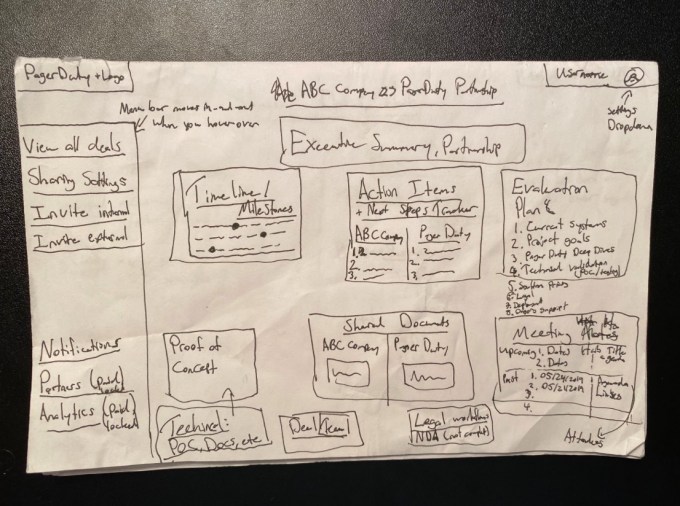 PagerDuty + Logo
Username
ABC Company PagerDuty Partnership
settings
Dropdown
Menu bar moves in-and-out
when you hover over
View all deals
Sharing Settings
Invite internal
Invite external
Notifications
Partners (Paid/
locked
Analytics (Paid/
locked
Executive Summary, Partnership
Timeline/
Milestones
Action Items
+ Next Steps Tracker
ABC Company
Pager Duty
1.
2.
3.
1.
2.
3.
Evaluation
Plan
1. Current systems
2. Project goals
3. Pager Duty Deep Dives
4. Technical validation
6. Legal
7. Deployment
Proof of
Concept
Technical:
POC, Docs, etc
Shared Documents
ABC Company
Pager Duty
Deal Team
Legal workflow
NDA
Meeting
Upcoming 1. Dates
2. Dates
Title
agenda
Past 1. 05/24/2019
2. 05/21/2019
3.
4.
Agenda
Attendees